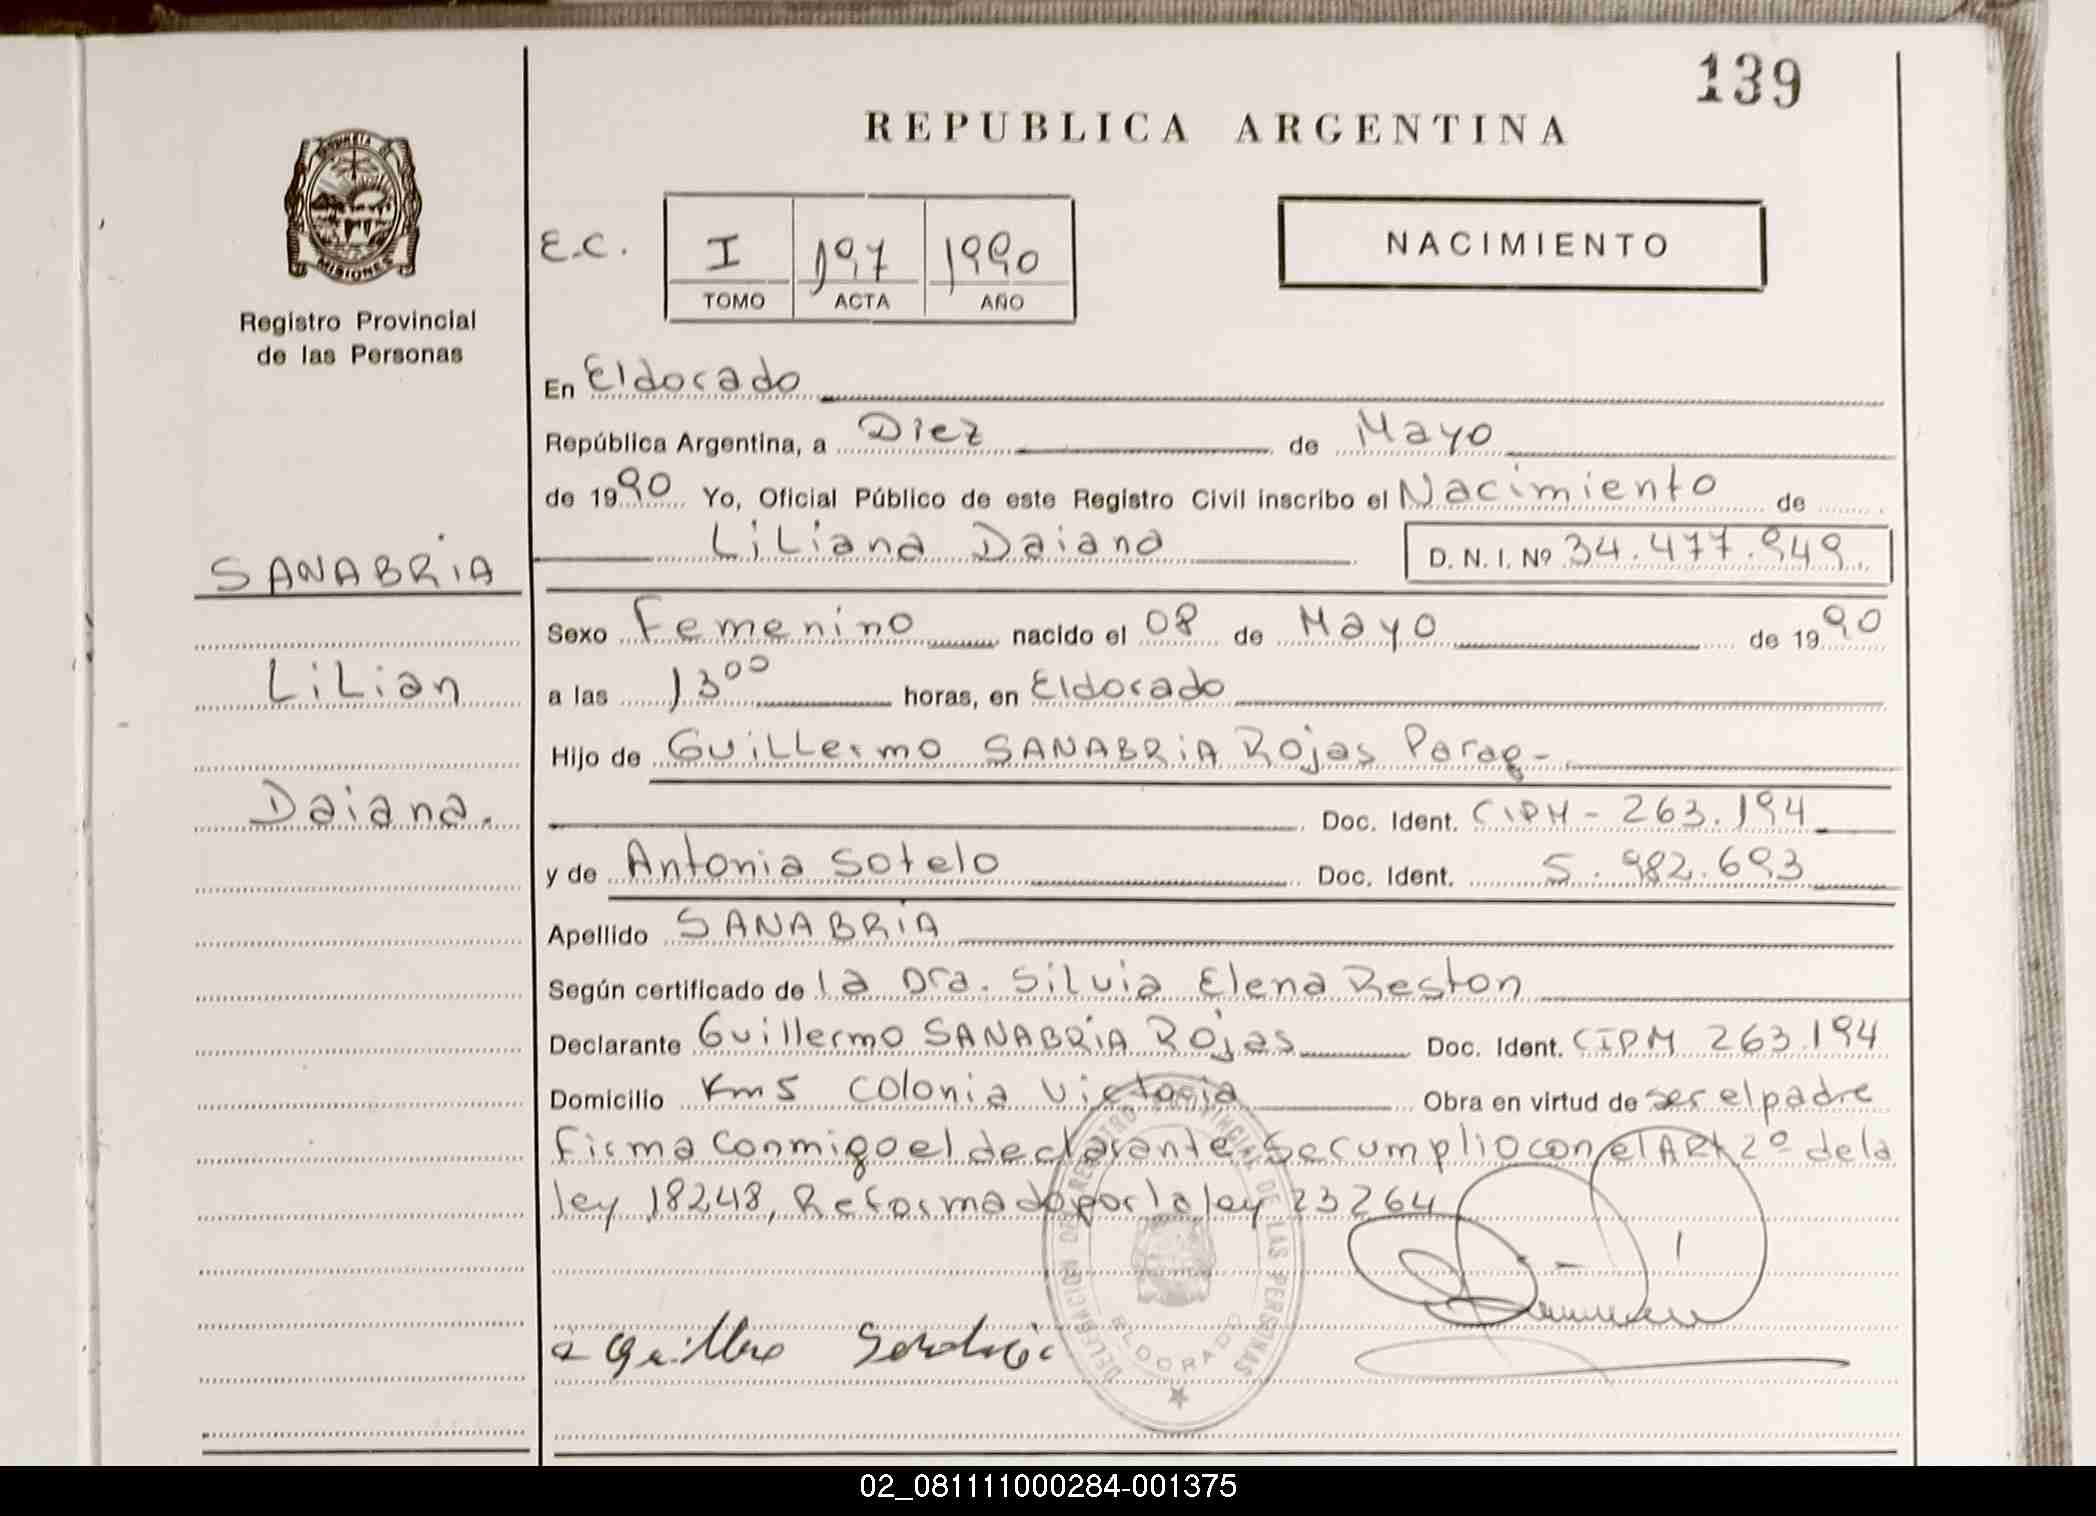 139
REPUBLICA ARGENTINA
PROVINCIA DE
MISIONES
Registro Provincial
de las Personas
E.C.
I 197 1990
TOMO ACTA AÑO
NACIMIENTO
En Eldorado
República Argentina, a Diez de Mayo
de 1990 Yo, Oficial Público de este Registro Civil inscribo el Nacimiento de
Liliana Daiana D. N. I. Nº 34.477.949.
SANABRIA
Lilian
Daiana.
Sexo Femenino nacido el 08 de Mayo de 1990
a las 13⁰⁰ horas, en Eldorado
Hijo de Guillermo SANABRIA Rojas Parag-
Doc. Ident. CIPM - 263.194
y de Antonia Sotelo Doc. Ident. 5.982.693
Apellido SANABRIA
Según certificado de la Dra. Silvia Elena Reston
Declarante Guillermo SANABRIA Rojas Doc. Ident. CIPM 263.194
Domicilio Km5 Colonia Victoria Obra en virtud de ser el padre
firma conmigo el declarante Se cumplio con el ARt 2º de la
ley 18248, Reformado por la ley 23264
DELEGACION DE REGISTRO PROVINCIAL DE LAS PERSONAS
ELDORADO
02_081111000284-001375